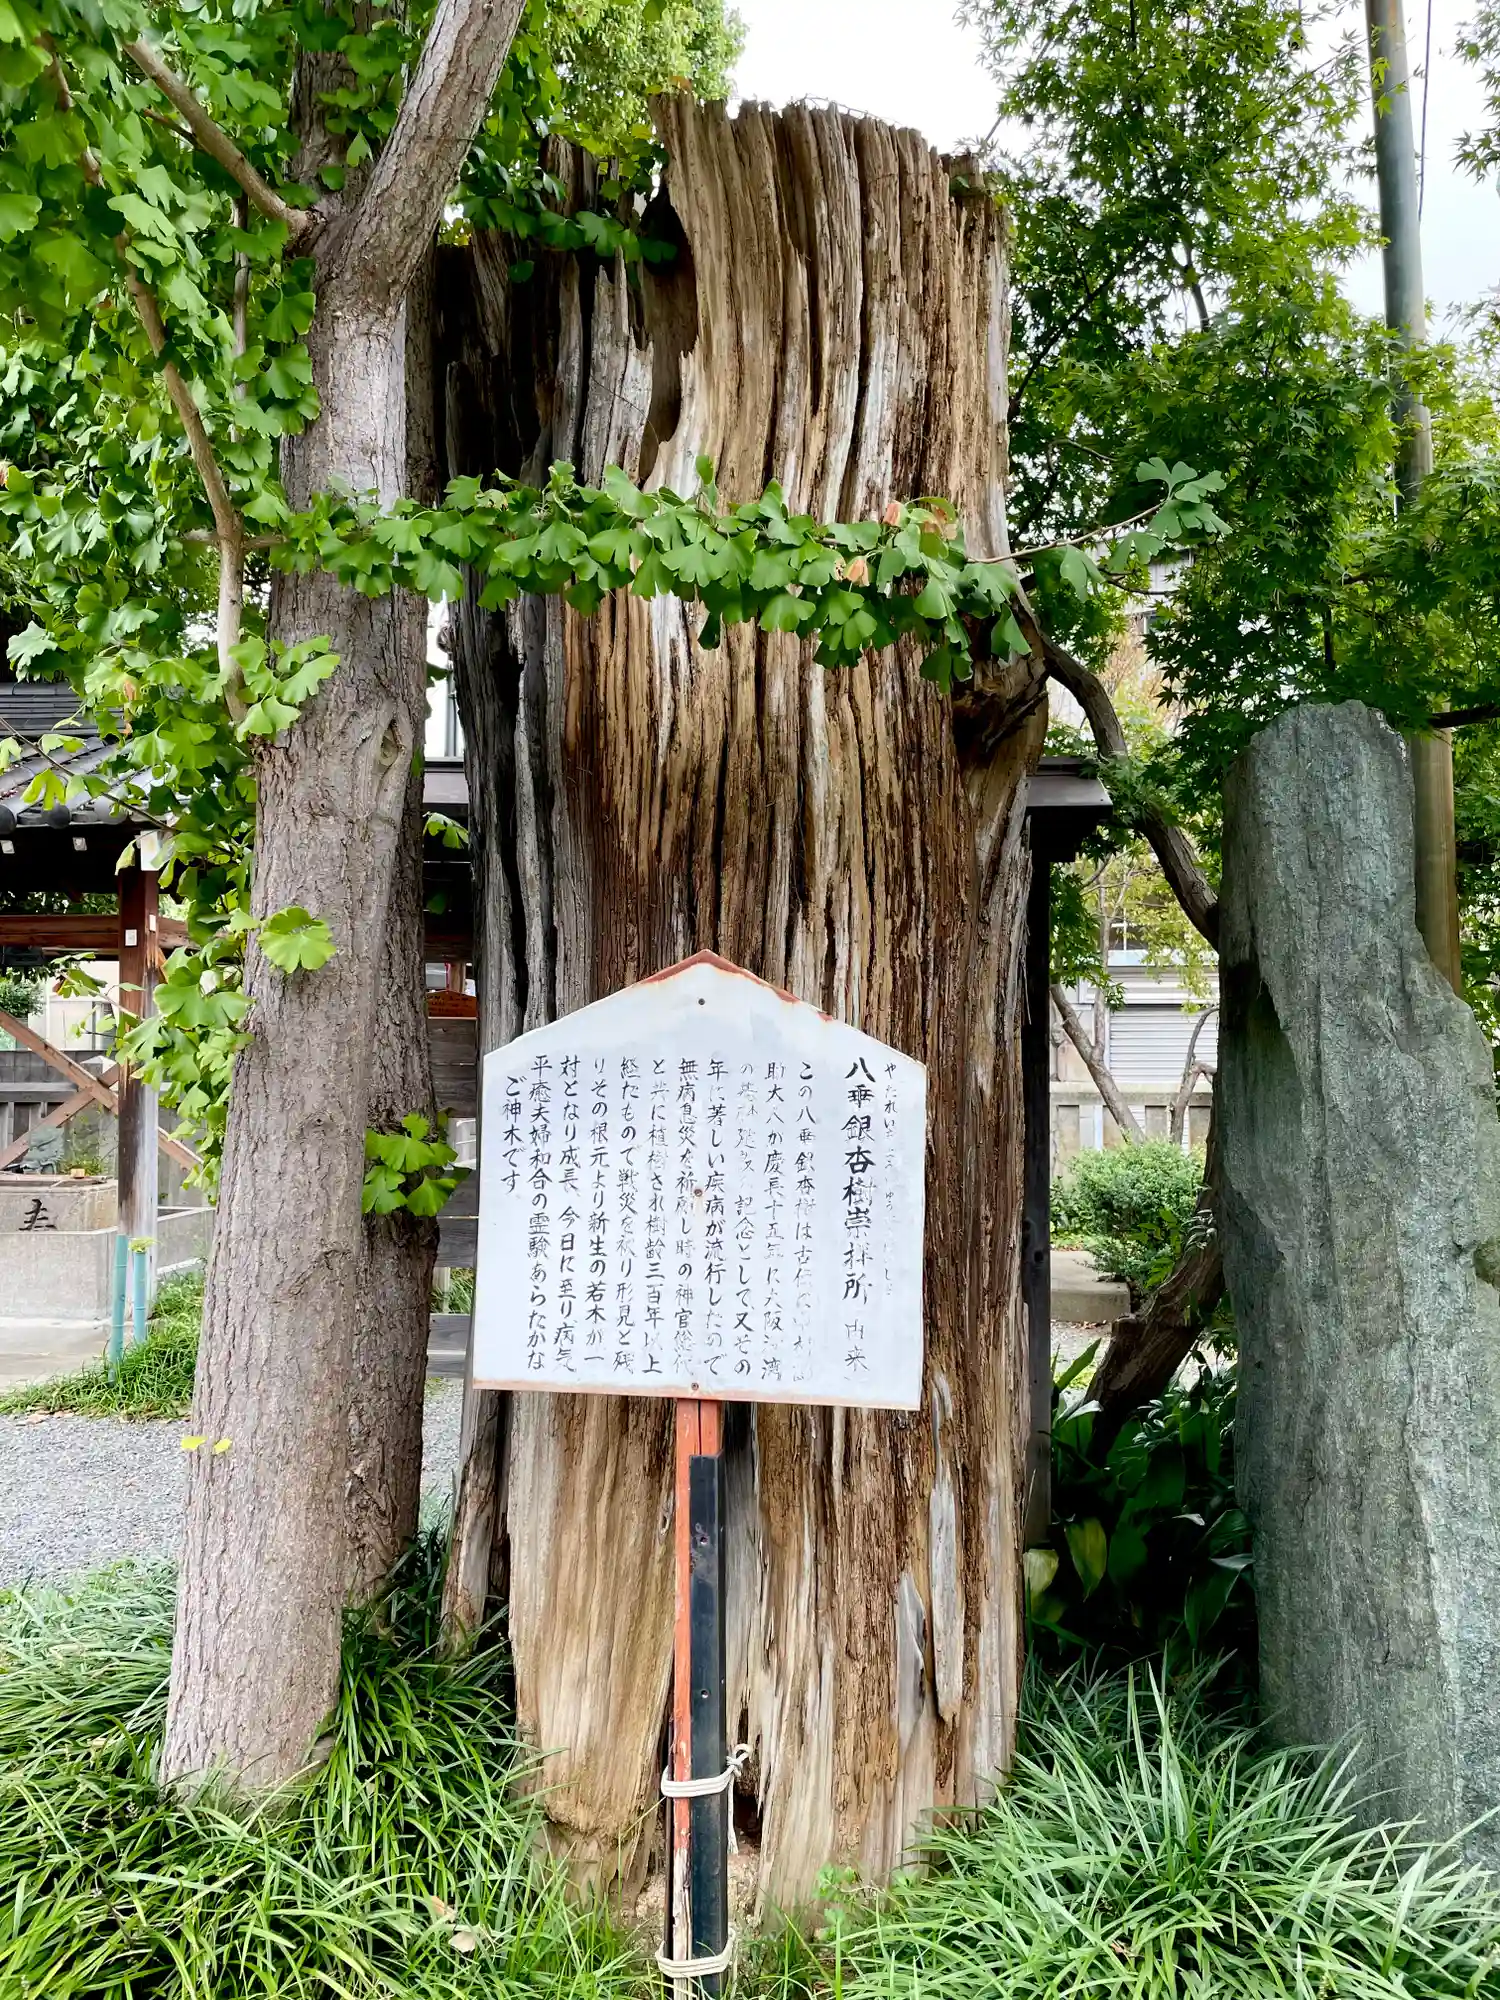 やたれい
八垂銀杏樹崇拝所 由来
この八垂銀杏樹は古
大八が慶長十五年に大阪 湾
の 記念として又その
年に著しい疾病が流行したので
無病息災を祈願し時の神官総代
と共に植樹され樹齢三百年以上
経たもので戦災を被り形見と残
りその根元より新生の若木が一
対となり成長、今日に至り病気
平癒夫婦和合の霊験あらたかな
ご神木です